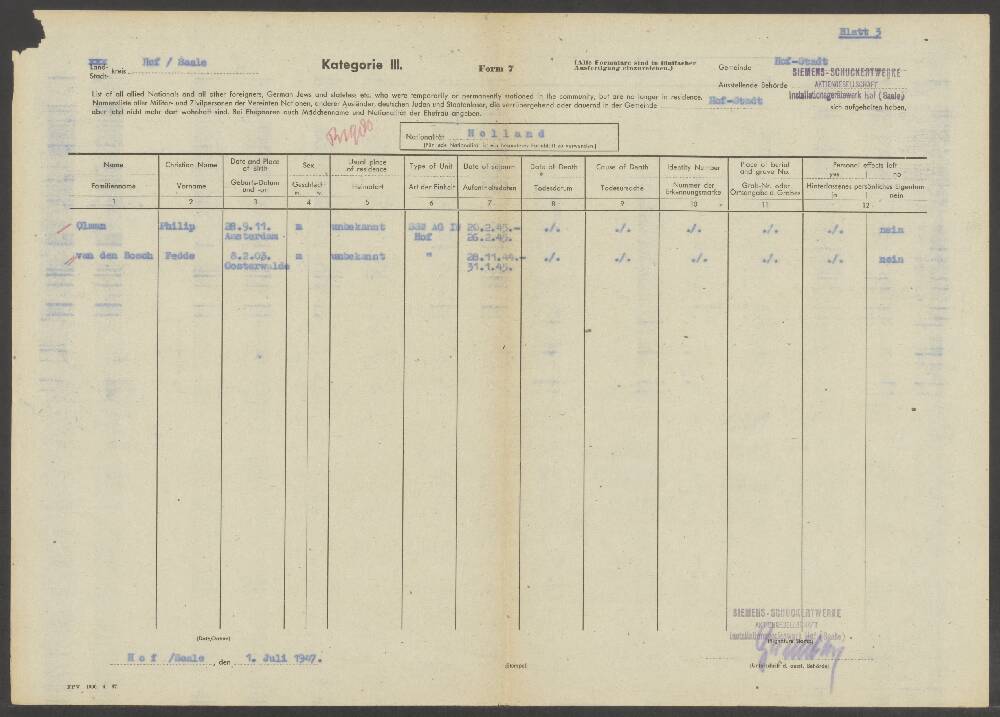 Blatt 3
Land-
Stadt- kreis Hof / Saale
Kategorie III.
Form 7
(Alle Formulare sind in fünffacher
Ausfertigung einzureichen.)
Gemeinde Hof-Stadt
SIEMENS-SCHUCKERTWERKE
Ausstellende Behörde AKTIENGESELLSCHAFT
Installationsgerätewerk Hof (Saale)
List of all allied Nationals and all other foreigners, German Jews and stateless etc. who were temporarily or permanently stationed in the community, but are no longer in residence.
Namensliste aller Militär- und Zivilpersonen der Vereinten Nationen, anderer Ausländer, deutschen Juden und Staatenloser, die vorübergehend oder dauernd in der Gemeinde Hof-Stadt sich aufgehalten haben,
aber jetzt nicht mehr dort wohnhaft sind. Bei Ehepaaren auch Mädchenname und Nationalität der Ehefrau angeben.
Nationalität Holland
(Für jede Nationalität ist ein besonderes Formblatt zu verwenden)
Name Christian Name Date and Place of birth Sex Usual place of residence Type of Unit Date of sojourn Date of Death Cause of Death Identity Number Place of burial and grave No. Personal effects left yes | no
Familienname Vorname Geburts-Datum und -ort Geschlecht m. w. Heimatort Art der Einheit Aufenthaltsdaten Todesdatum Todesursache Nummer der Erkennungsmarke Grab-Nr. oder Ortsangabe d. Grabes Hinterlassenes persönliches Eigentum ja nein
1 2 3 4 5 6 7 8 9 10 11 12
Olman Philip 28.9.11. m unbekannt SSW AG IW 20.2.45.- ./. ./. ./. ./. ./. nein
Amsterdam Hof 26.2.45.
van den Bosch Fedde 8.2.03. m unbekannt " 28.11.44.- ./. ./. ./. ./. ./. nein
Oosterwalde 31.1.45.
SIEMENS-SCHUCKERTWERKE
AKTIENGESELLSCHAFT
Installationsgerätewerk Hof (Saale)
(Date/Datum)
(Signature Stamp)
Hof /Saale , den 1. Juli 1947.
(Stempel)
(Unterschrift d. ausst. Behörde)